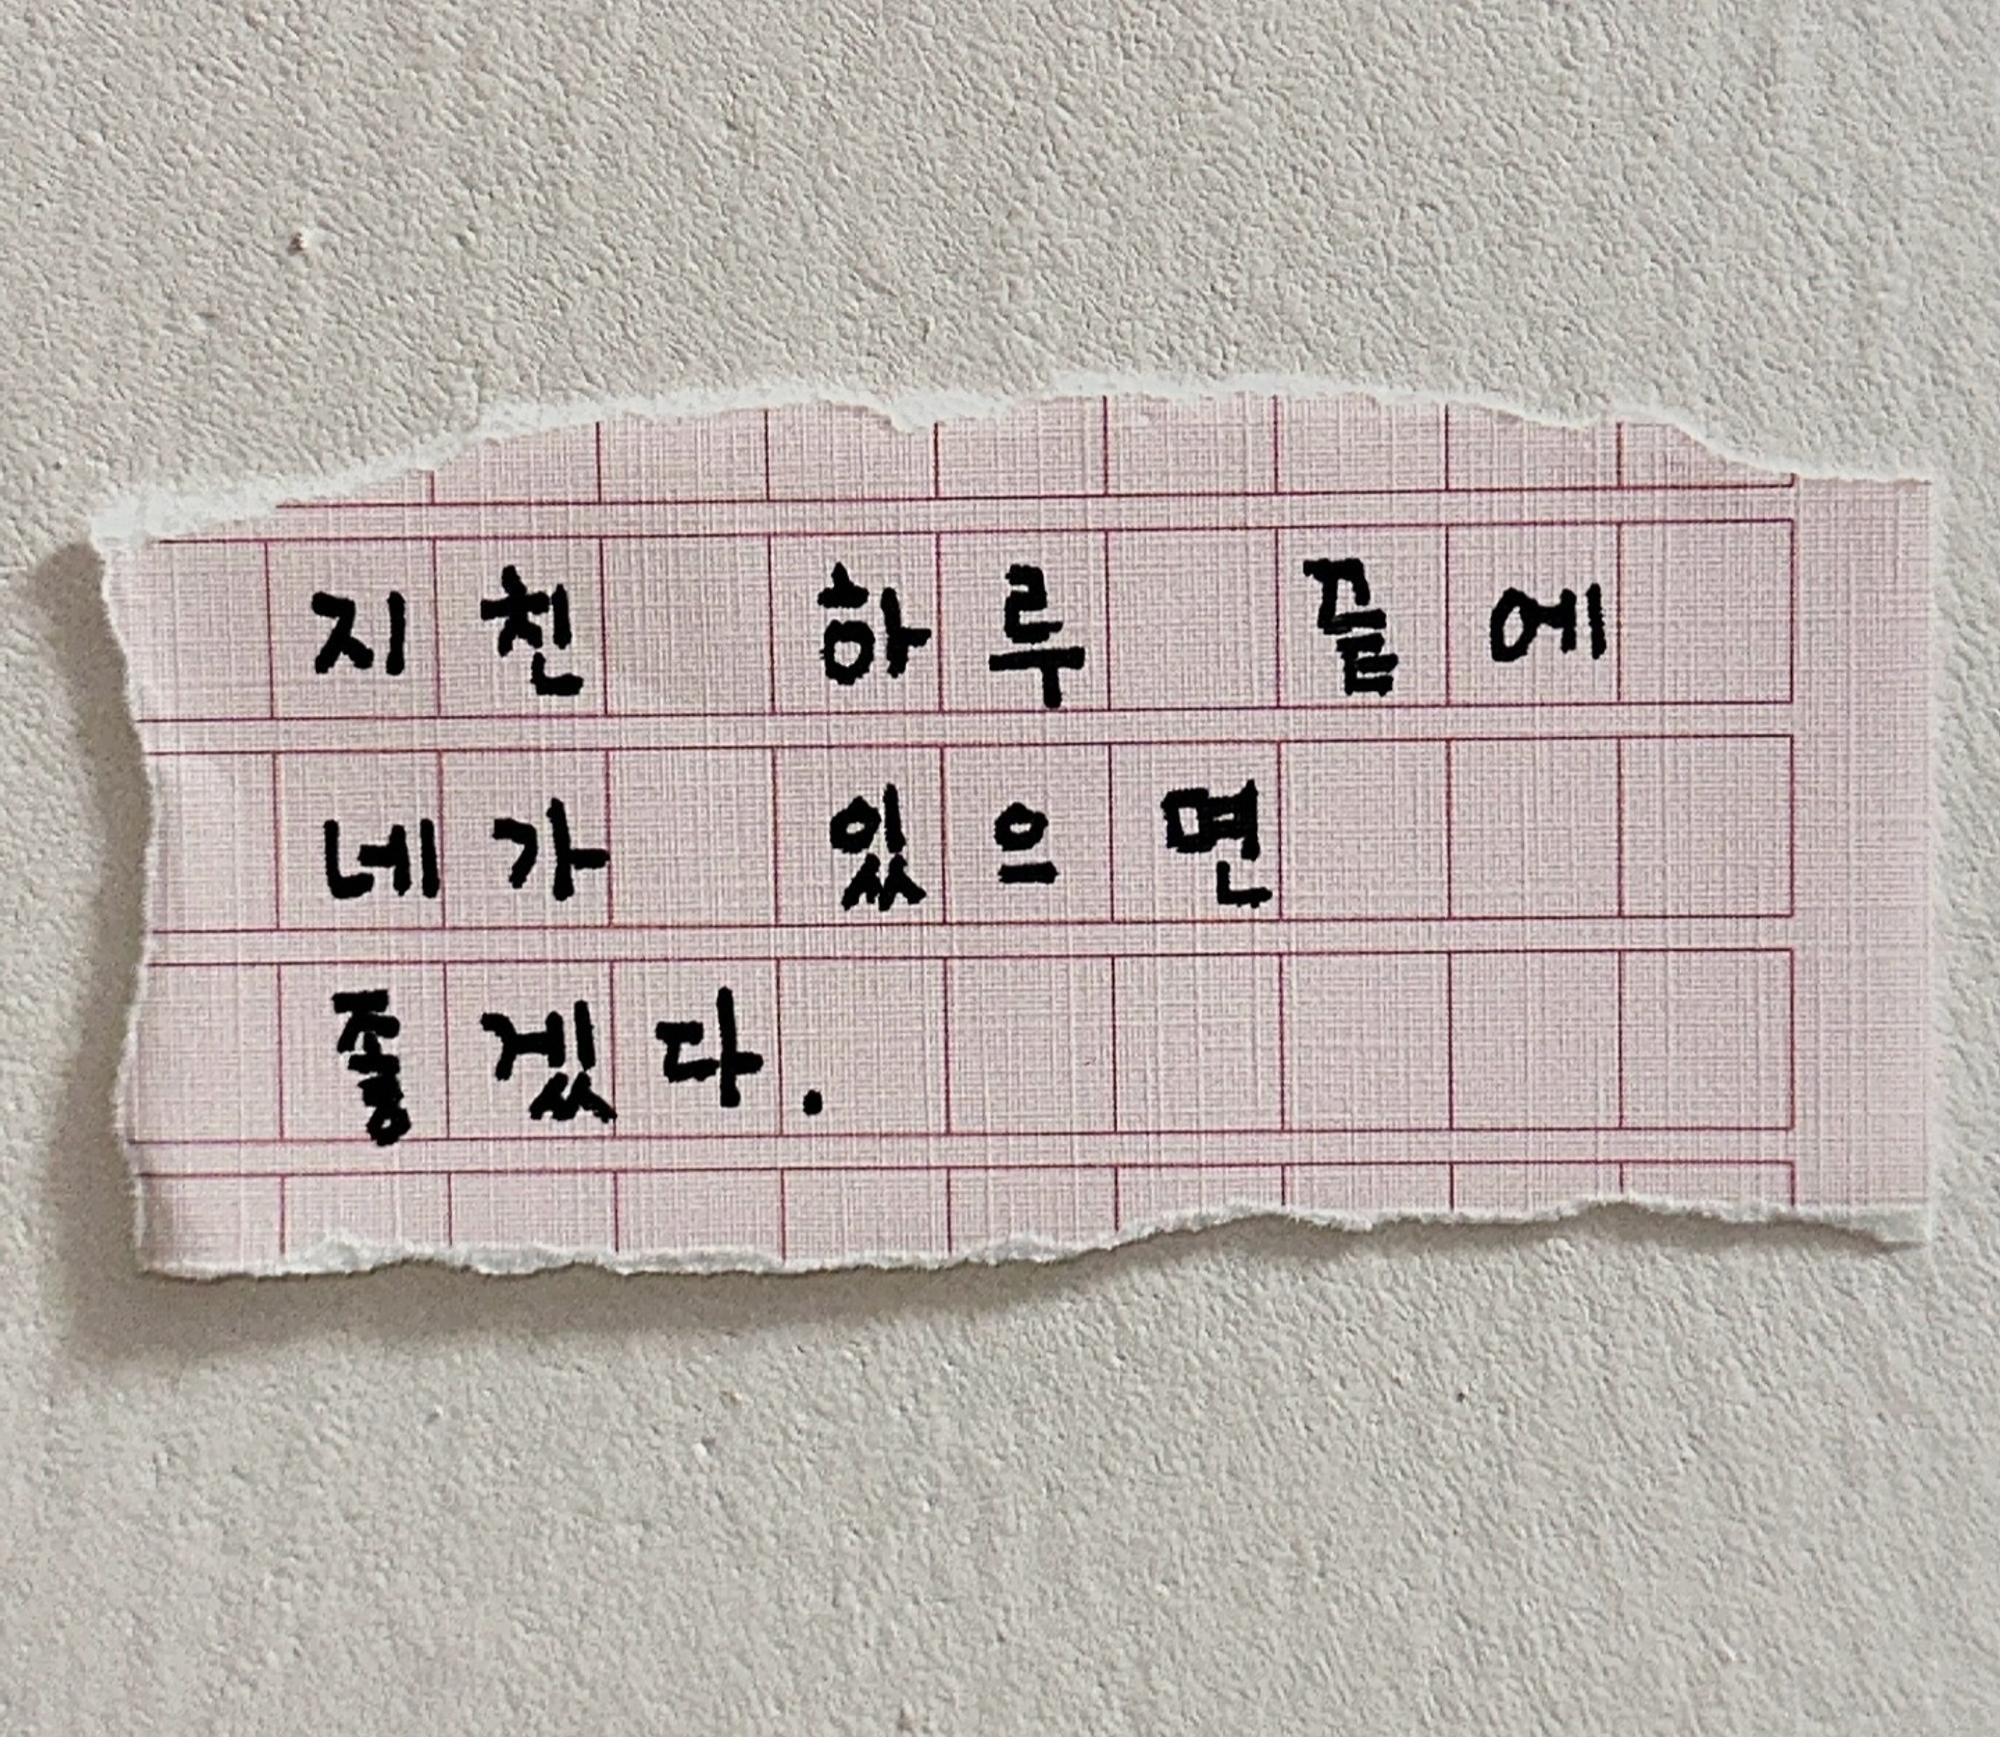 지친 하루 끝에
네가 있으면
좋겠다.